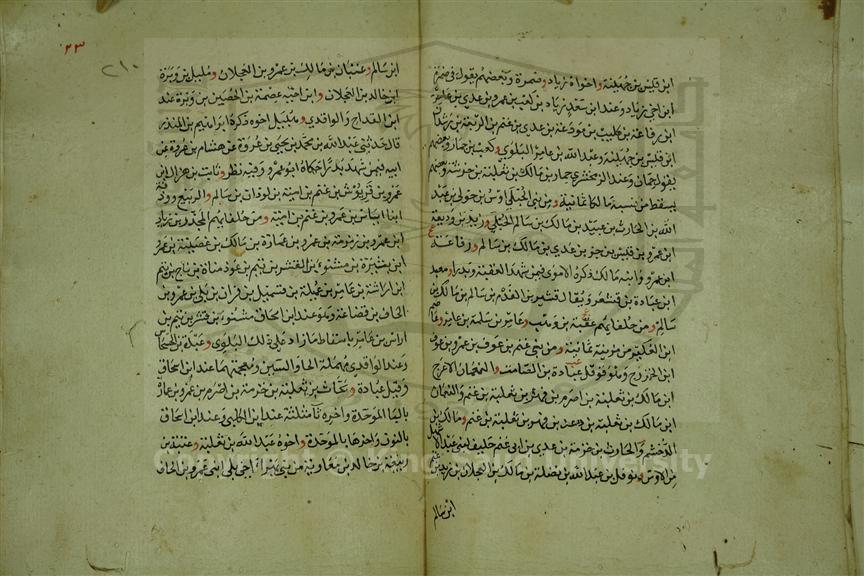 ابن قليس بن جهينة واخواه زياد وضمرة وبعضهم يقول في ضمرة
ابن اخي زياد وعند ابن سعد زياد بن كعب بن عمرو بن عدي بن عامر
ابن رفاعة بن كليب بن مودعة بن عدي بن غنم بن الربعة بن رشدان
ابن قيس بن جهينة وعبد الله بن عامر البلوي وكعب بن حمار وبعضهم
يقول جمان وعند الزمخشري حمار بن مالك بن ثعلبة بن خرشة وبعضهم
يسقط من نسبه مالكا ثمانية ومن بني الحبلي اوس بن خولي بن عبد
الله بن الحارث بن عبيد بن مالك بن سالم الحبلي وزيد بن وديعة
ابن عمرو بن قيس بن جزء بن عدي بن مالك بن سالم ورفاعة
ابن عمرو وابنه مالك ذكره الاموي فيمن شهد العقبة وبدرا ومعبد
ابن عبادة بن قشعر ويقال قشير بن الفدم بن سالم بن مالك بن
سالم ومن حلفائهم عقبة بن وهب وعامر بن سلمة بن عامر وعاصم
ابن العكير من مزينة ثمانية ومن بني غنم بن عوف بن عمرو بن عوف
ابن الخزرج وهو قوقل عبادة بن الصامت والنعمان الاعرج
ابن مالك بن ثعلبة بن اصرم بن فهر بن ثعلبة بن غنم والنعمان
ابن مالك بن ثعلبة بن دعد بن فهر بن ثعلبة بن غنم ومالك بن
الدخشم والحارث بن خزمة بن عدي بن ابي غنم حليف لبني عبد الاشهل
من الاوس ونوفل بن عبد الله بن نضلة بن مالك بن العجلان بن زيد بن غنم
ابن سالم
٢٣
٢١٠
ابن سالم وعتبان بن مالك بن عمرو بن العجلان ومليل بن وبرة
ابن خالد بن العجلان وابن اخيه عصمة بن الحصين بن وبرة عند
ابن القداح والواقدي وهبيل اخوه ذكره ابراهيم بن المنذر
قال حدثني عبد الله بن محمد بن يحيى بن عروة عن هشام بن عروة عن
ابيه فيمن شهد بدرا حكاه ابو عمرو وفيه نظر وثابت بن هزال ابن
عمرو بن قريوش بن غنم بن امية بن لوذان بن سالم والربيع وورقة
ابنا اياس بن عمرو بن غنم بن امية ومن حلفائهم المجذر بن زياد
ابن عمرو بن زمزمة بن عمرو بن عمارة بن مالك بن غصينة بن عمرو
ابن بثيرة بن مشنوء بن القشر بن تيم بن عوذ مناة بن ناج بن تيم
ابن اراشة بن عامر بن عبيلة بن قسميل بن فران بن بلي بن عمرو بن
الحاف بن قضاعة وهو عند ابن اسحاق مشنوء بن قشر بن تيم بن
اراش بن عامر باسقاط ما زاد على ذلك البلوي وعبدة بن الحسحاس
وعند الواقدي مهملة الحا والسين ومعجمة ما عند ابن اسحاق
وقيل عبادة وبحاث بن ثعلبة بن خزمة بن اصرم بن عمرو بن عمارة
بالبا الموحدة واخره ثا مثلثة عند ابن الكلبي وعند ابن اسحاق
بالنون واخرها بالموحدة واخوه عبد الله بن ثعلبة وعتبة بن
ربيعة بن خالد بن معاوية من بني بهراء اخي بلي ابني عمرو بن الحاف